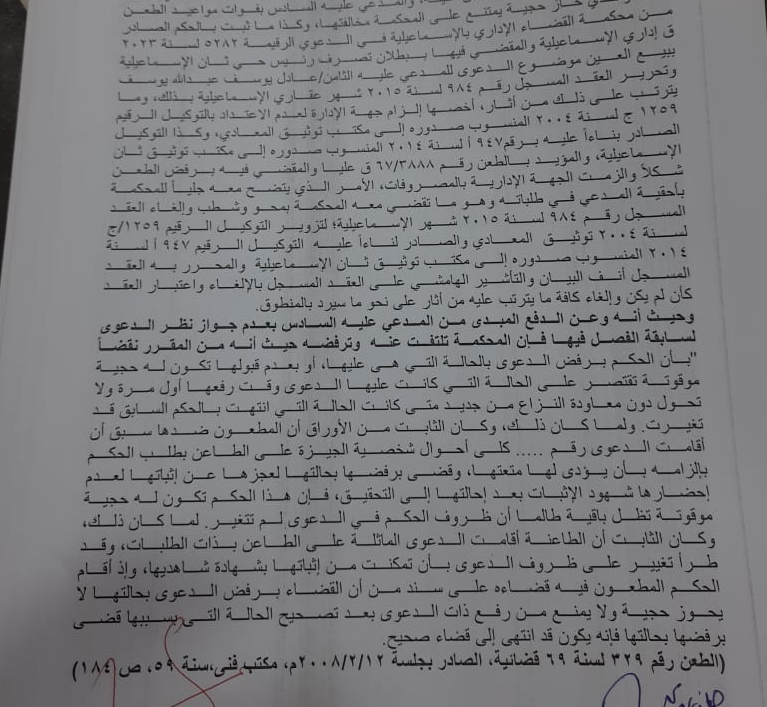 حاز حجية يمتنع على المحكمة مخالفتها، وكذا ما ثبت بالحكم الصادر
من محكمة القضاء الإداري بالإسماعيلية في الدعوي الرقيمة ٥٢٨٢ لسنة ٢٠٢٣
ق إداري الإسماعيلية والمقضي فيها ببطلان تصرف رئيس حي ثان الإسماعيلية
ببيع العين موضوع الدعوى للمدعي عليه الثامن/عادل يوسف عبدالله يوسف
وتحرير العقد المسجل رقم ٩٨٤ لسنة ٢٠١٥ شهر عقاري الإسماعيلية بذلك، وما
يترتب على ذلك من أثار، أخصها إلزام جهة الإدارة لعدم الاعتداد بالتوكيل الرقيم
١٢٥٩ ج لسنة ٢٠٠٤ المنسوب صدوره إلى مكتب توثيق المعادي، وكذا التوكيل
الصادر بناءاً عليه برقم ٩٤٧ أ لسنة ٢٠١٤ المنسوب صدوره إلى مكتب توثيق ثان
الإسماعيلية، والمؤيد بالطعن رقم ٦٧/٣٨٨٨ ق عليا والمقضي فيه برفض الطعن
شكلاً والزمت الجهة الإدارية بالمصروفات، الأمر الذي يتضح معه جلياً للمحكمة
بأحقية المدعي في طلباته وهو ما تقضي معه المحكمة بمحو وشطب وإلغاء العقد
المسجل رقم ٩٨٤ لسنة ٢٠١٥ شهر الإسماعيلية؛ لتزوير التوكيل الرقيم ١٢٥٩/ج
لسنة ٢٠٠٤ توثيق المعادي والصادر لناءاً عليه التوكيل الرقيم ٩٤٧ أ لسنة
٢٠١٤ المنسوب صدوره إلى مكتب توثيق ثان الإسماعيلية والمحرر به العقد
المسجل أنف البيان والتأشير الهامشي على العقد المسجل بالإلغاء واعتبار العقد
كأن لم يكن وإلغاء كافة ما يترتب عليه من أثار على نحو ما سيرد بالمنطوق.
وحيث أنه وعن الدفع المبدى من المدعي عليه السادس بعدم جواز نظر الدعوى
لسابقة الفصل فيها فإن المحكمة تلتفت عنه وترفضه حيث أنه من المقرر نقضاً
"بأن الحكم برفض الدعوى بالحالة التي هى عليها، أو بعدم قبولها تكون له حجية
موقوتة تقتصر على الحالة التي كانت عليها الدعوى وقت رفعها أول مرة ولا
تحول دون معاودة النزاع من جديد متى كانت الحالة التي انتهت بالحكم السابق قد
تغيرت. ولما كان ذلك، وكان الثابت من الأوراق أن المطعون ضدها سبق أن
أقامت الدعوى رقم ..... كلى أحوال شخصية الجيزة على الطاعن بطلب الحكم
بإلزامه بأن يؤدى لها متعتها، وقضى برفضها بحالتها لعجزها عن إثباتها لعدم
إحضارها شهود الإثبات بعد إحالتها إلى التحقيق، فإن هذا الحكم تكون له حجية
موقوتة تظل باقية طالما أن ظروف الحكم في الدعوى لم تتغير. لما كان ذلك،
وكان الثابت أن الطاعنة أقامت الدعوى الماثلة على الطاعن بذات الطلبات، وقد
طرأ تغيير على ظروف الدعوى بأن تمكنت من إثباتها بشهادة شاهديها، وإذ أقام
الحكم المطعون فيه قضاءه على سند من أن القضاء برفض الدعوى بحالتها لا
يحوز حجية ولا يمنع من رفع ذات الدعوى بعد تصحيح الحالة التي بسببها قضى
برفضها بحالتها فإنه يكون قد انتهى إلى قضاء صحيح.
(الطعن رقم ٣٢٩ لسنة ٦٩ قضائية، الصادر بجلسة ٢٠٠٨/٢/١٢م، مكتب فني،سنة ٥٩، ص ١٨٤)